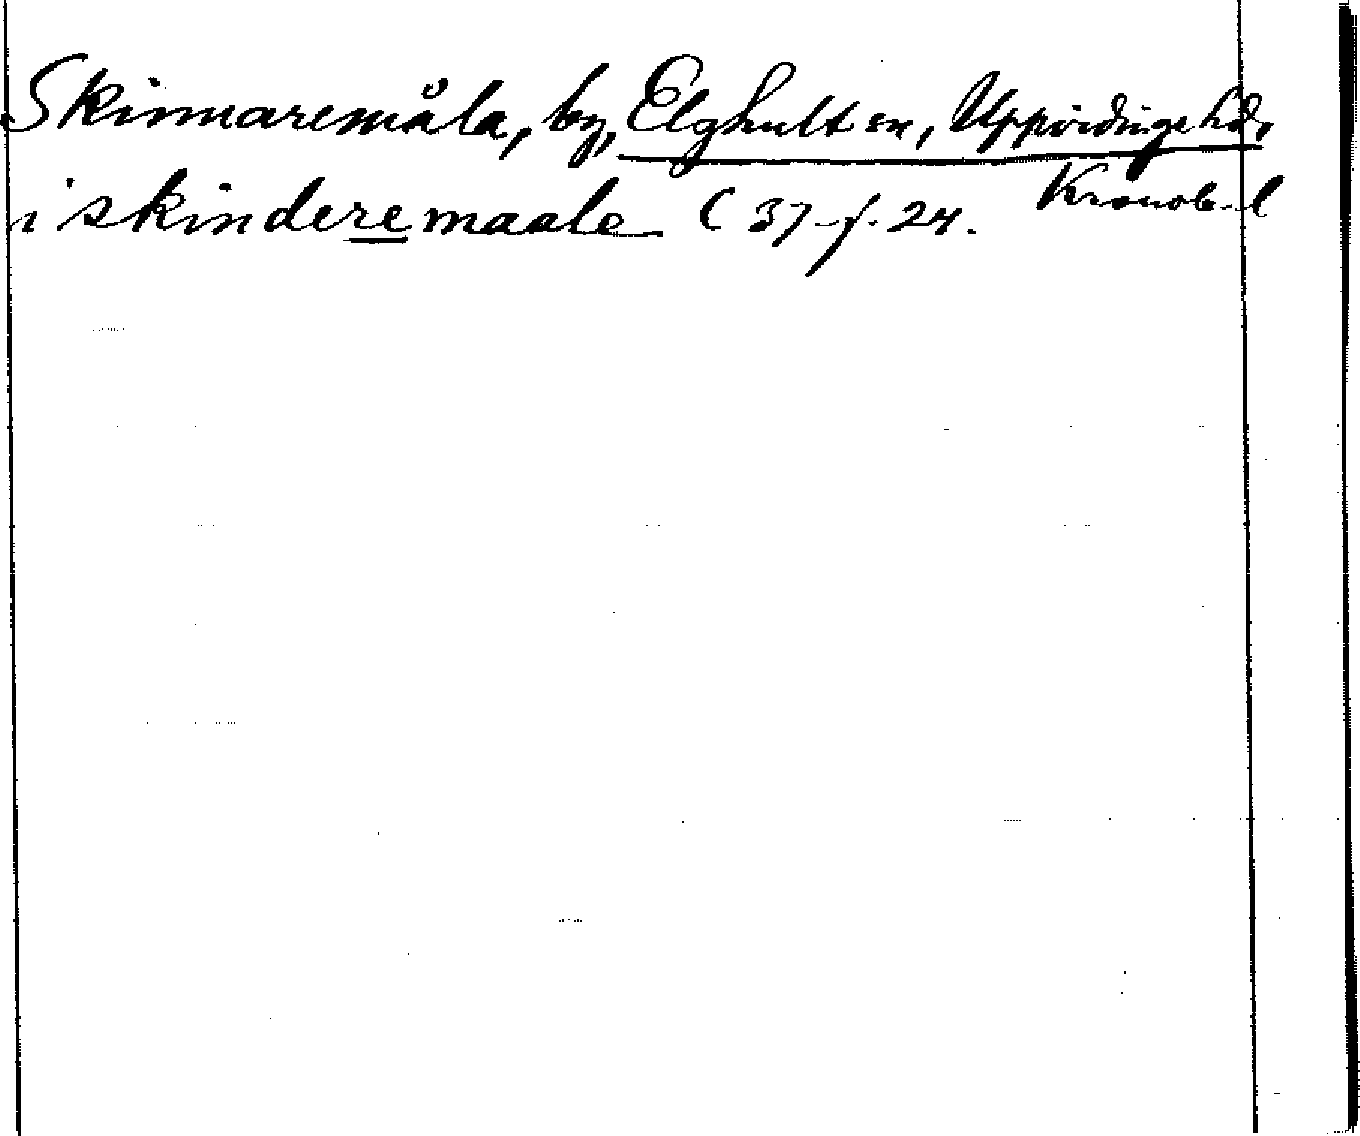 Skinnaremåla, by, Elghult sn, Uppvidinge hd,
Kronob. l
i skinderemaale C 37 f. 24.